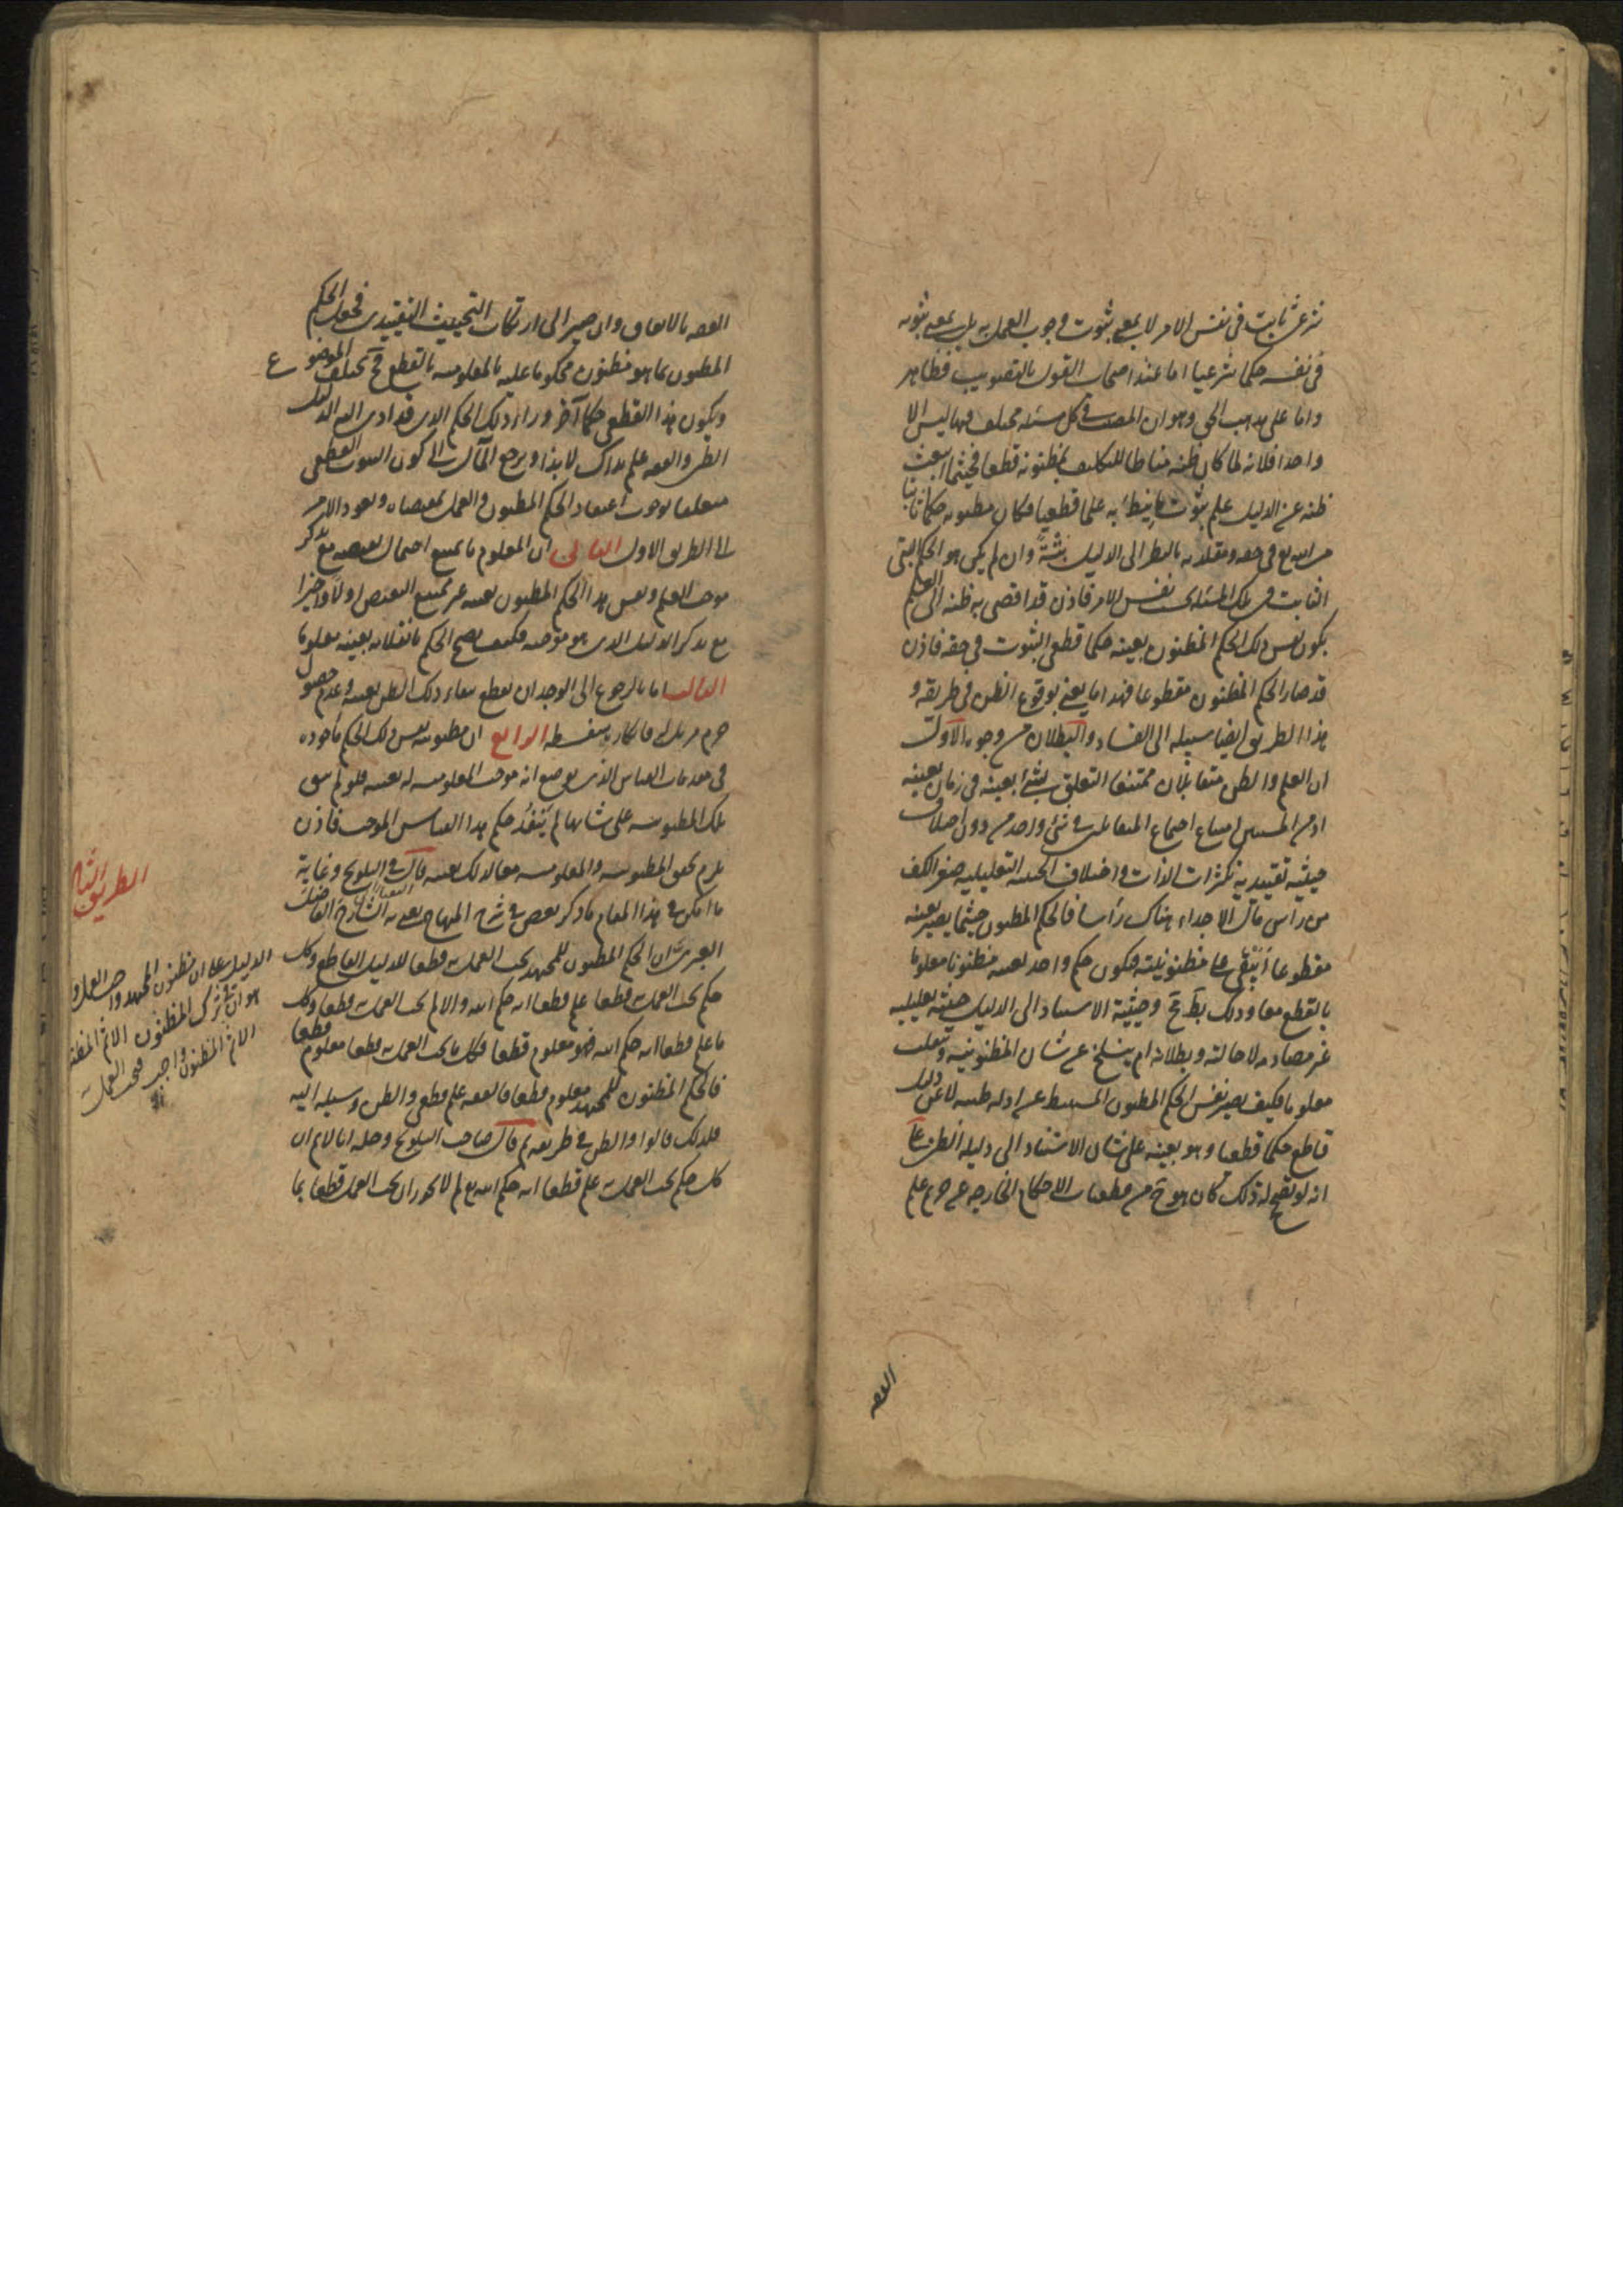 شرعى ثابت فى نفس الامر لا بمعنى ثبوت وجوب العمل به بل بمعنى ثبوته
فى نفسه حكما شرعيا اما عند اصحاب القول بالتصويب فظاهر
واما على مذهب الحق وهو ان المصيب فى كل مسئلة مختلف فيها ليس الا
واحدا فلانه لما كان ظنه مناطا للتكليف بمظنونه قطعا فحيثما انبعث
ظنه عن الدليل علم ثبوت ما نيط به علما قطعيا فكان مظنونه حكما ثابتا
من الله تع فى حقه ومقلديه بالنظر الى الدليل بتة وان لم يكن هو الحكم البتى
الثابت فى تلك المسئلة بحسب نفس الامر فاذن قد افضى به ظنه الى العلم
بكون نفس ذلك الحكم المظنون بعينه حكما قطعى الثبوت فى حقه فاذن
قد صار الحكم المظنون مقطوعا فهذا ما يعنى بوقوع الظن فى طريقه و
هذا الطريق ايضا سبيله الى الفساد والبطلان من وجوه الاول
ان العلم والظن متقابلان ممتنعا التعلق بشئ بعينه فى زمان بعينه
امتناع اجتماع المتقابلين فى شئ واحد من دون اختلاف
حيثية تقييدية تكثر ذات الذات واختلاف الحيثية التعليلية صفر الكف
من رأس مال الاجداء هناك رأسا فالحكم المظنون حيثما يصير بعينه
مقطوعا أيبقى على مظنونيته فيكون حكم واحد بعينه مظنونا معلوما
بالقطع معا وذلك بط ح وحيثية الاستناد الى الدليل حيثية تعليلية
غير مصادمة لاحالته وبطلانه ام ينسلخ عن شان المظنونية وينقلب
معلوما فكيف يصير نفس الحكم المظنون المستنبط عن ادلة ظنية لا عن دليل
قاطع حكما قطعيا وهو بعينه على شان الاستناد الى دليله الظنى على
انه لو تصحح له ذلك كان هو ح من قطعيات الاحكام الخارجة عن حريم علم
الفقه
الفقه بالاتفاق وان صير الى ارتكاب التحييث التقييدى فجعل الحكم
المظنون بما هو مظنون محكوما عليه بالمعلومية بالقطع فح يختلف الموضوع
ويكون هذا القطعى حكما آخر وراء ذلك الحكم الذى قد ادى اليه الدليل
الظنى والفقه علم بذاك لا بهذا ويرجع المآل الى كون الثبوت القطعى
متعلقا بوجوب اعتقاد الحكم المظنون والعمل بمقتضاه ويعود الامر
الى الطريق الاول الثانى ان المعلوم ما يمتنع احتمال نقيضه مع تذكر
موجب العلم ونفس هذا الحكم المظنون بعينه غير ممتنع النقيض اولا واخيرا
مع تذكر الدليل الذى هو موجبه فكيف يصح الحكم بانقلابه بعينه معلوما
الثالث انا بالرجوع الى الوجدان نقطع ببقاء ذلك الظن بعينه وعدم حصول
جزم مزيل له فانكاره سفسطة الرابع ان مظنونية نفس ذلك الحكم مأخوذة
فى مقدمات القياس الذى يوضع انه موجب المعلومية له بعينه فلو لم تبق
تلك المظنونية على شانها لم ينفذ حكم هذا القياس الموجب فاذن
يلزم تحقق المظنونية والمعلومية معا لذلك بعينه قال فى التلويح وغاية
ما امكن فى هذا المقام ما ذكر بعض فى شرح المنهاج يعنى به الشارح الفاضل
العبرى ان الحكم المظنون للمجتهد يجب العمل به قطعا للدليل القاطع وكل
حكم يجب العمل به قطعا علم قطعا انه حكم الله والا لم يجب العمل به قطعا وكل
ما علم قطعا انه حكم الله فهو معلوم قطعا فكل ما يجب العمل به قطعا معلوم قطعا
فالحكم المظنون للمجتهد معلوم قطعا فالفقه علم قطعى والظن وسيلة اليه
فلذلك قالوا والظن فى طريقه ثم قال صاحب التلويح وحله انا لا نم ان
كل حكم يجب العمل به علم قطعا انه حكم الله تع لم لا يجوز ان يجب العمل قطعا بما
الطريق الثالث
الدليل على ان مظنون المجتهد واجب العمل
هو ان فى ترك المظنون الاثم المظنون
الاثم المظنون واجب فيجب العمل به